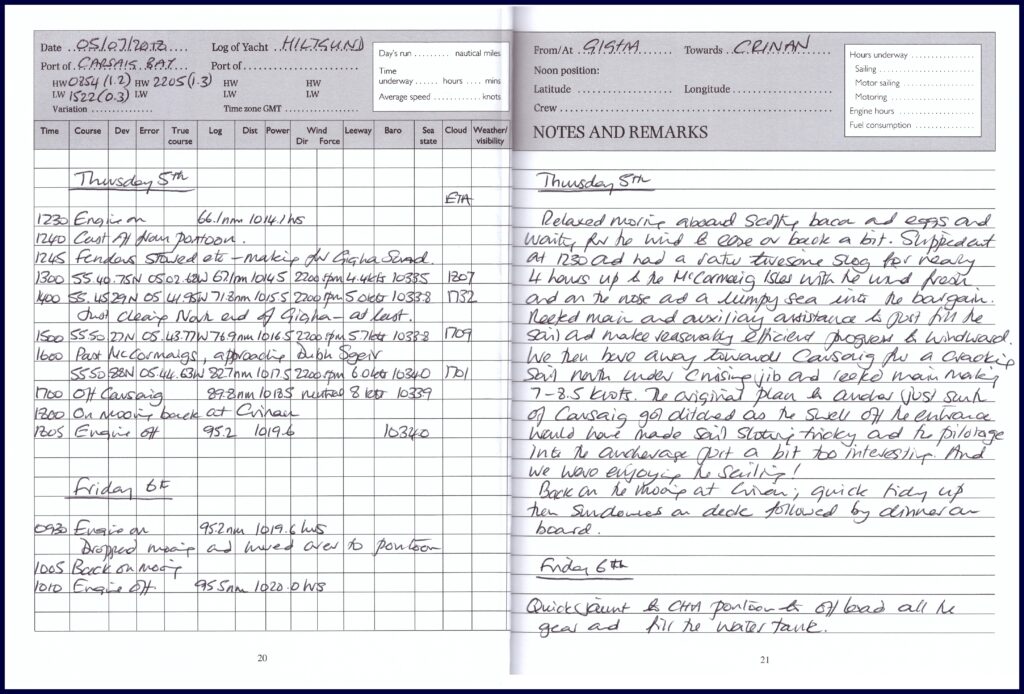 Date 05/07/2012 Log of Yacht HILTSUND
Port of CARSAIG BAY Port of
HW 0854 (1.2) HW 2205 (1.3) HW HW
LW 1522 (0.3) LW LW LW
Variation Time zone GMT
Day's run nautical miles
Time
underway hours mins
Average speed knots
Time Course Dev Error True course Log Dist Power Wind Dir Force Leeway Baro Sea state Cloud Weather/visibility
Thursday 5th
ETA
1230 Engine on 66.1nm 1014.1 hrs
1240 Cast off from pontoon.
1245 Fenders stowed etc - making for Gigha Sound.
1300 55 40.75N 05 02.62W 67.1nm 1014.5 2200rpm 4.4kts 1033.5 1807
1400 55.4529N 05 41.95W 71.8nm 1015.5 2200rpm 5.0kts 1033.8 1732
Just clearing North end of Gigha - at last.
1500 55.50 27N 05.43.77W 76.9nm 1016.5 2200rpm 5.7kts 1033.8 1709
1600 Past McCormaigs, approaching Dubh Sgeir
55 50.88N 05 44.63W 82.7nm 1017.5 2200rpm 6.0kts 1034.0 1701
1700 Off Carsaig 89.8nm 1018.5 neutral 8 kts 1033.9
1800 On mooring back at Crinan
1805 Engine off 95.2 1019.6 1034.0
Friday 6th
0930 Engine on 95.2nm 1019.6 hrs
Dropped mooring and moved over to pontoon
1005 Back on mooring
1010 Engine off 95.5nm 1020.0 hrs
20
From/At GIGHA Towards CRINAN
Noon position:
Latitude Longitude
Crew
NOTES AND REMARKS
Hours underway
Sailing
Motor sailing
Motoring
Engine hours
Fuel consumption
Thursday 5th
Relaxed morning aboard scoffing bacon and eggs and
waiting for the wind to ease or back a bit. Slipped out
at 1230 and had a rather tiresome slog for nearly
4 hours up to the McCormaig Isles with the wind fresh
and on the nose and a lumpy sea into the bargain.
Reefed main and auxiliary assistance to just fill the
sail and make reasonably efficient progress to windward.
We then bore away towards Carsaig for a cracking
sail north under cruising jib and reefed main making
7-8.5 knots. The original plan to anchor just south
of Carsaig got ditched as the swell off the entrance
would have made sail stowing tricky and the pilotage
into the anchorage just a bit too interesting. And
we were enjoying the sailing!
Back on the mooring at Crinan, quick tidy up
then sundowners on deck followed by dinner on
board.
Friday 6th
Quick jaunt to pontoon to off load all the
gear and fill the water tank.
21